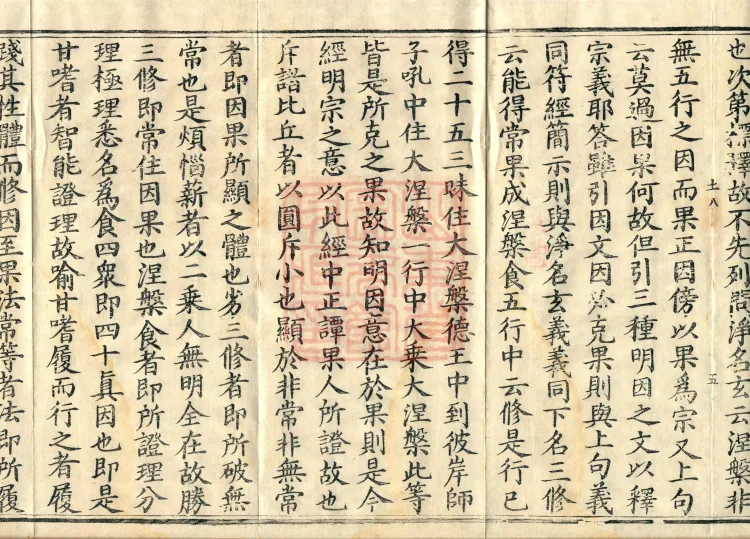 也次第標釋故不先列問淨名玄云涅槃非
無五行之因而果正因傍以果爲宗又上句
云莫過因果何故但引三種明因之文以釋
宗義耶答雖引因文因必克果則與上句義
同符經簡示則與淨名玄義義同下名三修
云能得常果成涅槃食五行中云修是行已
得二十五三昧住大涅槃德王中到彼岸師
子吼中住大涅槃一行中大乘大涅槃此等
皆是所克之果故知明因意在於果則是今
經明宗之意以此經中正譚果人所證故也
斥諸比丘者以圓斥小也顯於非常非無常
者即因果所顯之體也劣三修者即所破無
常也是煩惱薪者以二乗人無明全在故勝
三修即常住因果也涅槃食者即所證理分
理極理悉名爲食四衆即四十眞因也即是
甘嗜者智能證理故喻甘嗜履而行之者履
踐其性體而修因至果法常等者法即所履
土八
五